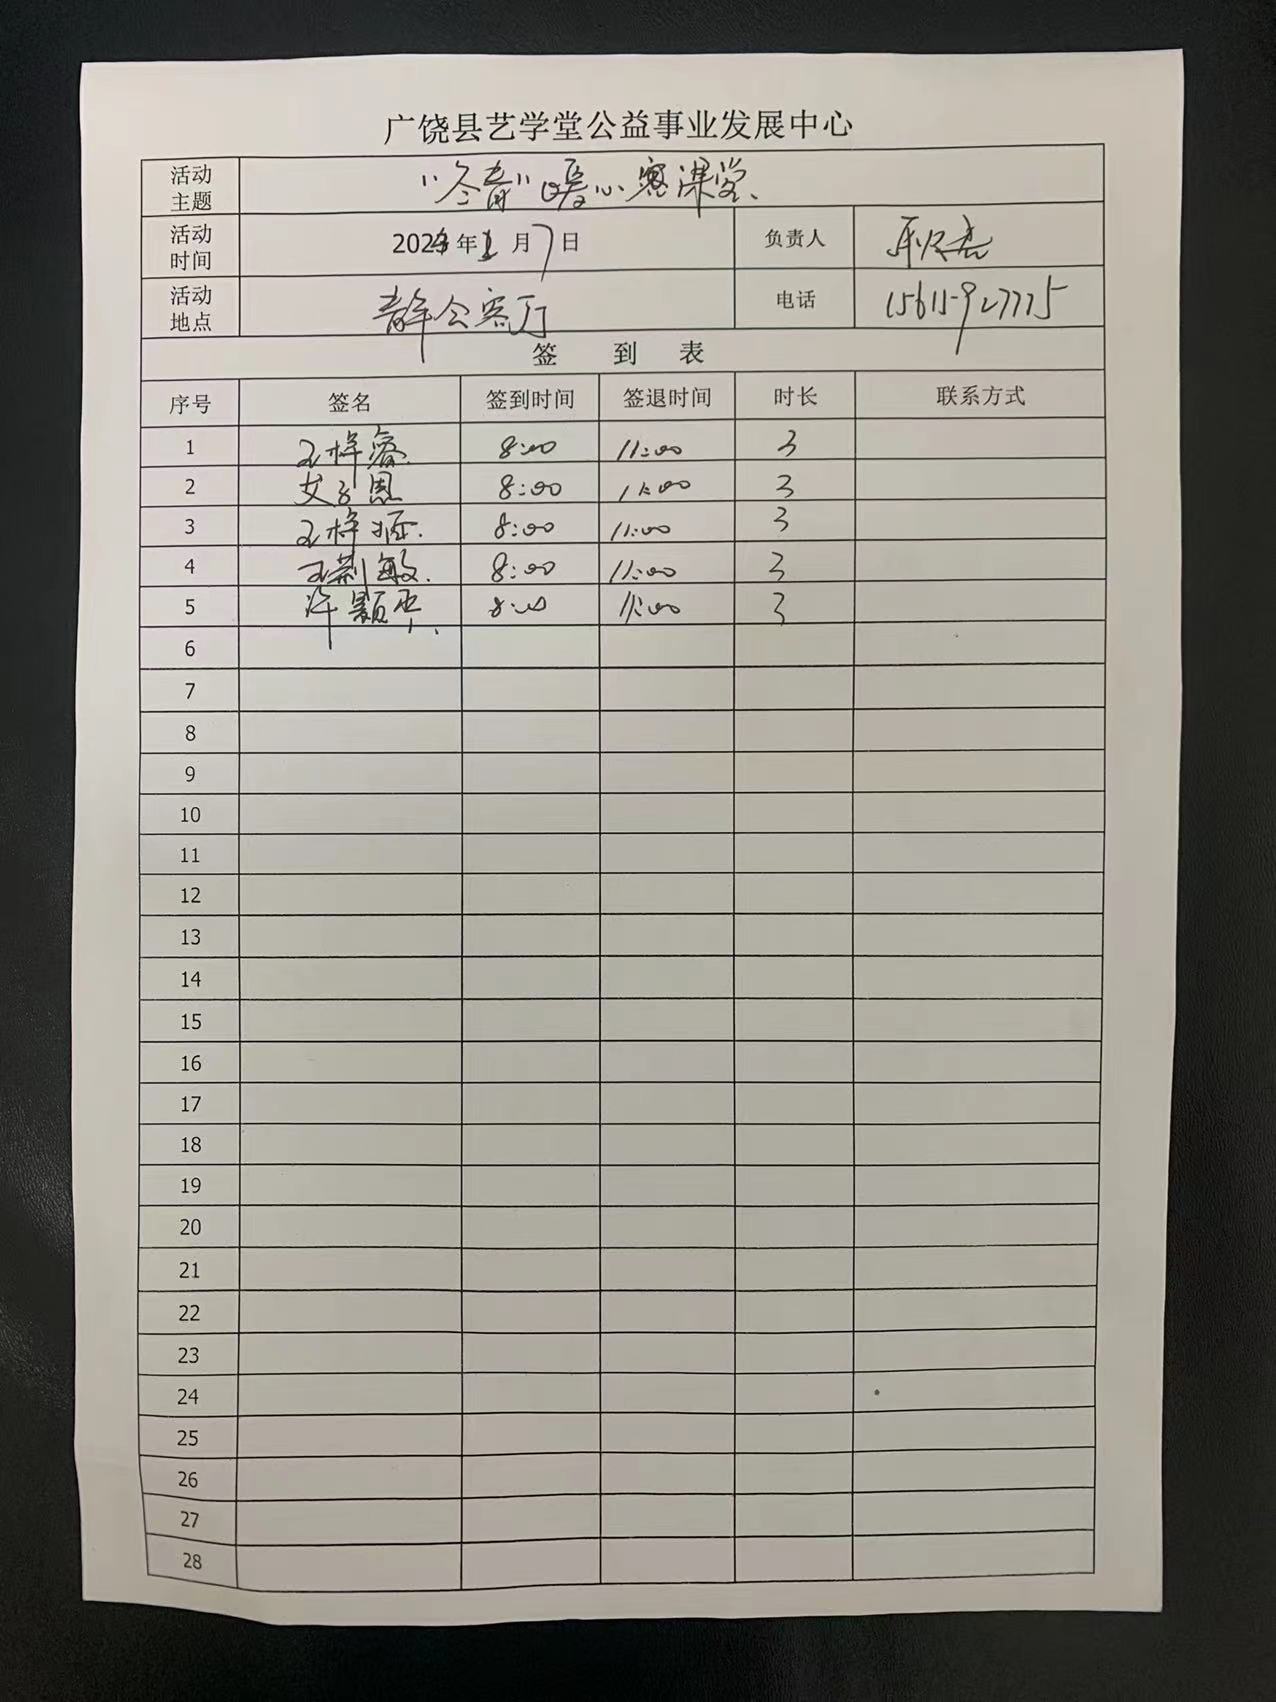 广饶县艺学堂公益事业发展中心
活动主题 “冬青”暖心寒课堂
活动时间 2024年1月7日 负责人
活动地点 电话 15615927775
签 到 表
序号 签名 签到时间 签退时间 时长 联系方式
1 王梓睿 8:00 11:00 3
2 8:00 11:00 3
3 王梓 8:00 11:00 3
4 王荆敏 8:00 11:00 3
5 许颢 8:00 11:00 3
6
7
8
9
10
11
12
13
14
15
16
17
18
19
20
21
22
23
24
25
26
27
28